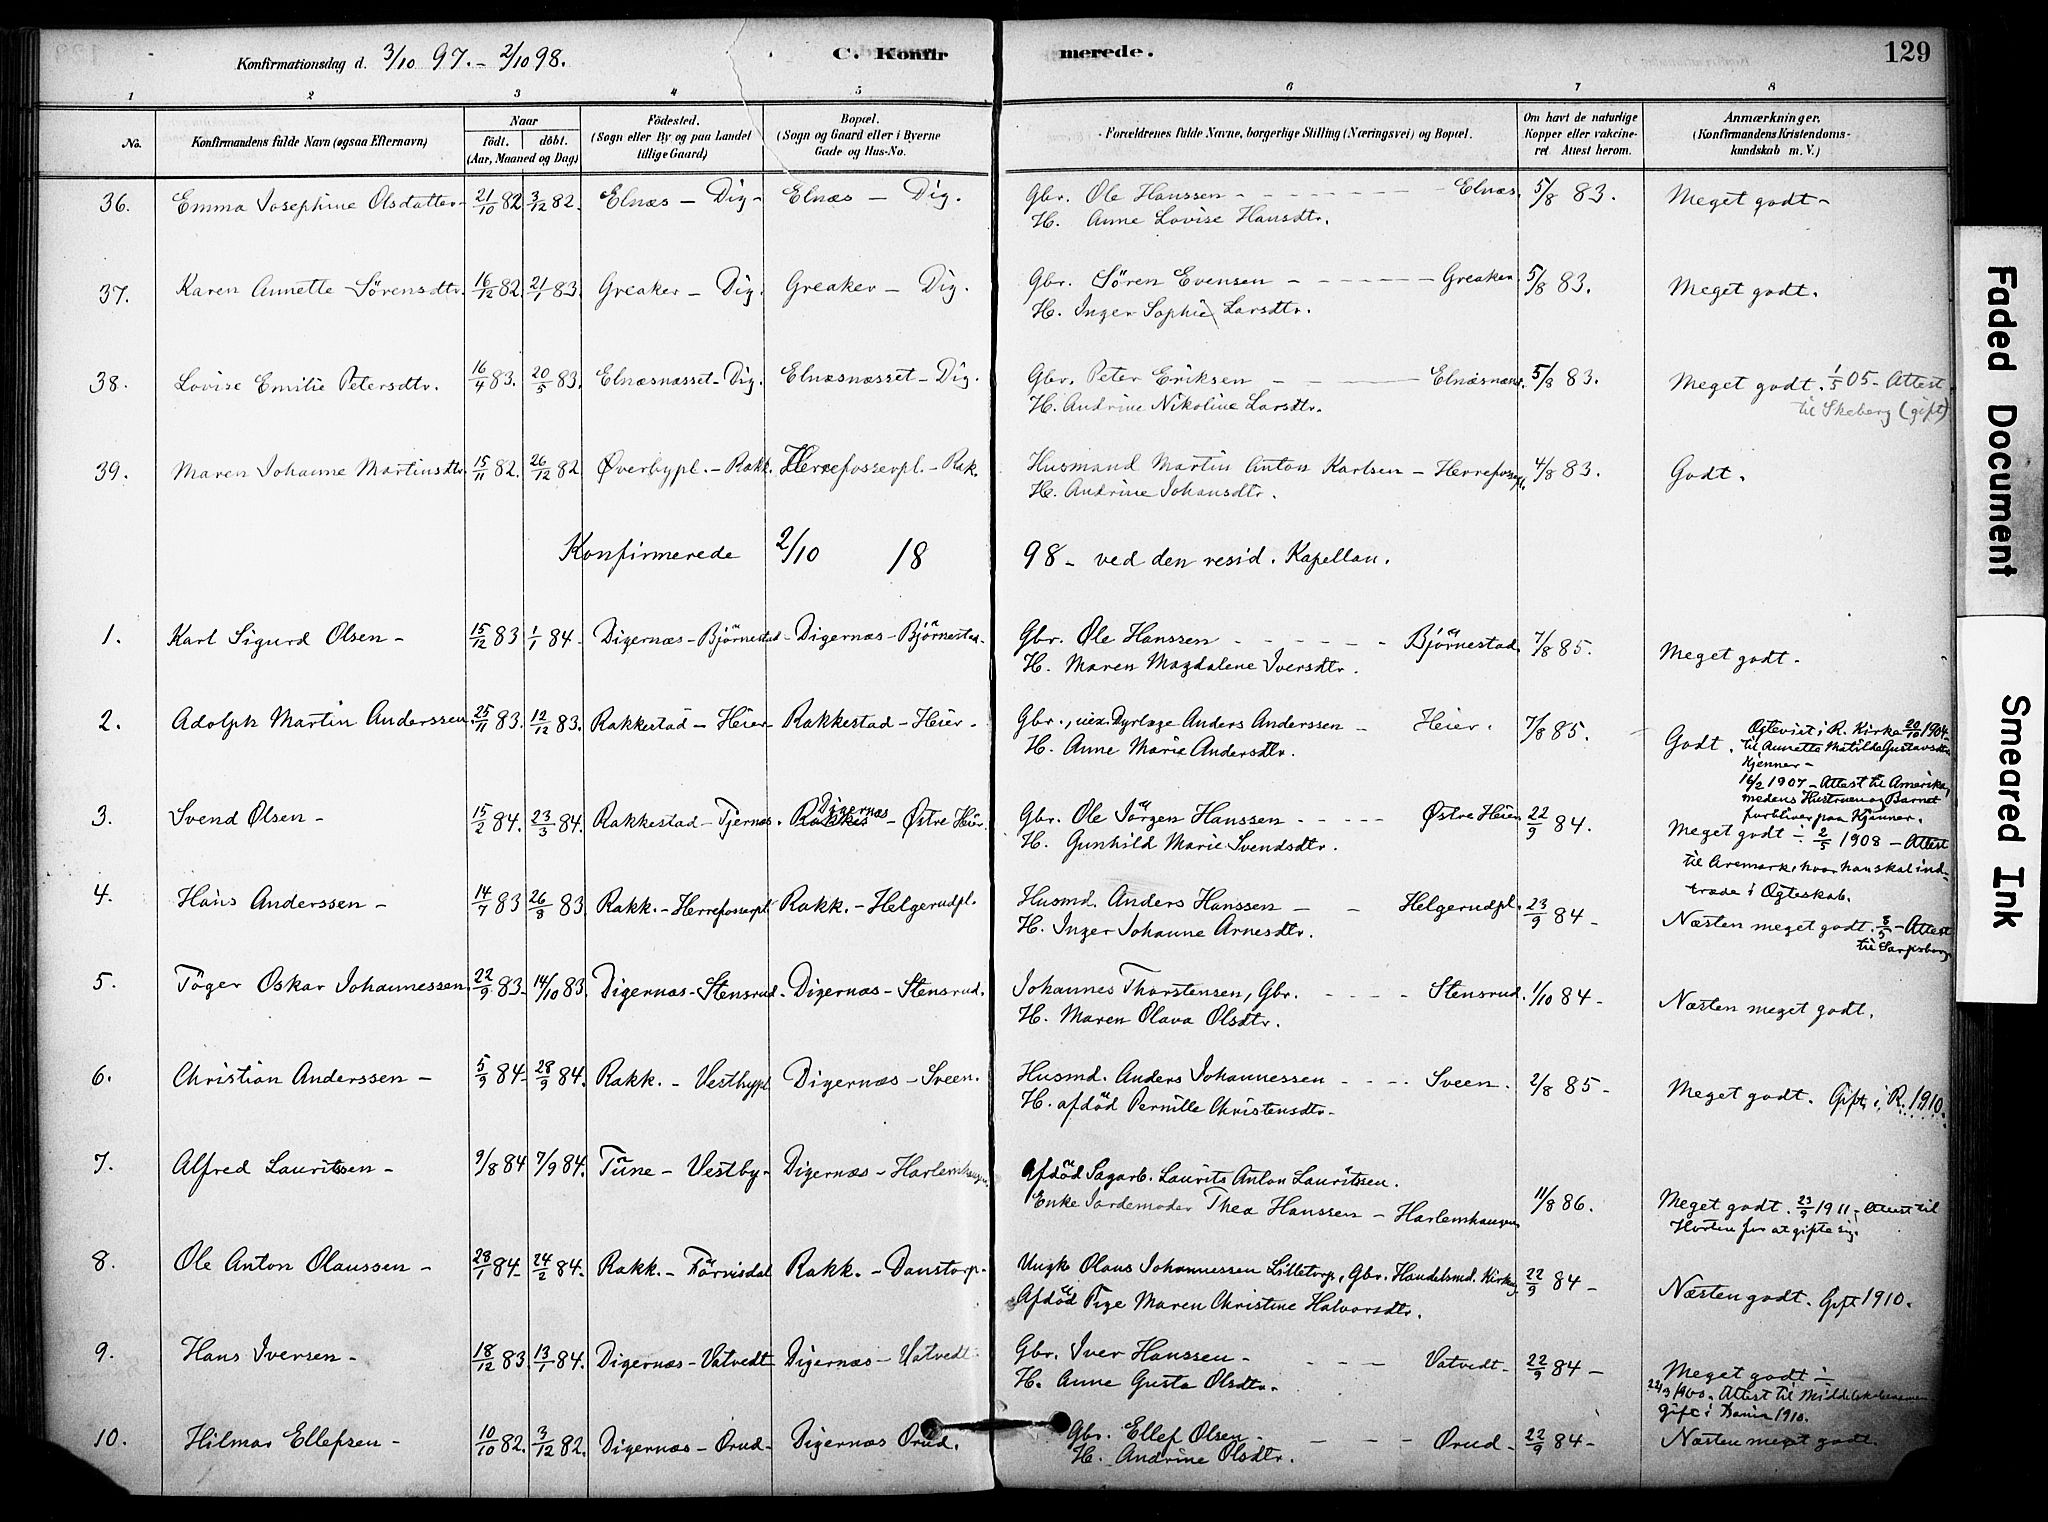 Konfirmationsdag d. 3/10 97. - 2/10 98.
C. Konfir merede.
129
1 2 3 4 5 6 7 8
No.
Konfirmandens fulde Navn (ogsaa Efternavn)
Naar
født. døbt.
(Aar, Maaned og Dag)
Fødested.
(Sogn eller By og paa Landet
tillige Gaard)
Bopæl.
(Sogn og Gaard eller i Byerne
Gade og Hus-No.
Forældrenes fulde Navne, borgerlige Stilling (Næringsvei) og Bopæl.
Om havt de naturlige
Kopper eller vakcine-
ret Attest herom.
Anmærkninger.
(Konfirmandens Kristendoms-
kundskab m. V.)
36. Emma Josephine Olsdatter 21/10 82 3/12 82. Elnæs - Dig. Elnæs - Dig. Gbr. Ole Hanssen - Elnæs. 5/8 83. Meget godt -
H. Anne Lovise Hansdtr.
37. Karen Annette Sörensdtr. 16/12 82. 21/1 83. Greaker - Dig. Greaker - Dig. Gbr. Sören Evensen - Greaker. 5/8 83. Meget godt.
H. Inger Sophie Larsdtr.
38. Lovise Emilie Petersdtr. 16/4 83. 20/5 83. Elnæsnæsset - Dig. Elnæsnæsset - Dig. Gbr. Peter Eriksen - 5/8 83. Meget godt. 1/5 05 - Attest
til Skeberg (gift)
H. Andrine Nikoline Larsdtr.
39. Maren Johanne Martinsdtr. 15/11 82. 26/12 82. Øverbypl. - Rakk. Herrefosserpl. - Rak. Husmand Martin Anton Karlsen - Herrefosserpl. 4/8 83. Godt.
H. Andrine Johansdtr.
Konfirmerede 2/10 18 98 - ved den resid. Kapellan.
1. Karl Sigurd Olsen - 15/12 83 1/1 84 - Digernæs - Björnestad - Digernæs - Björnestad. Gbr. Ole Hanssen - Björnestad. 7/8 85. Meget godt.
H. Maren Magdalene Iversdtr.
2. Adolph Martin Anderssen. 25/11 83. 12/12 83. Rakkestad - Heier - Rakkestad - Heier - Gbr., Dyrlæge Anders Anderssen - Heier. 7/8 85. Godt. Ægteviet i R. Kirke 20/10 1904
til Annette Matilde Gustavsdtr
Kjenner -
H. Anne Marie Andersdtr.
16/2 1907 - Attest til Amerika,
medens Hustruen og Barnet
forbliver paa Kjenner.
3. Svend Olsen - 15/2 84. 23/3 84. Rakkestad - Tjernæs. Digernæs - Østre Heier. Gbr. Ole Jörgen Hanssen - Østre Heier 22/9 84. Meget godt - 2/5 1908 - Attest
til Aremark, hvor han skal ind-
træde i Ægteskab.
H. Gunhild Marie Svendsdtr.
4. Hans Anderssen - 14/7 83 26/9 83. Rakk. - Herrefosserpl. Rakk. - Helgerudpl. Husmd. Anders Hanssen - Helgerudpl. 23/9 84 - Næsten meget godt. 8/5 - Attest
til Sarpsborg
H. Inger Johanne Arnesdtr.
5. Töger Oskar Johannessen. 22/9 83 - 14/10 83. Digernæs - Stensrud. Digernæs - Stensrud. Johannes Thorstensen, Gbr. - Stensrud. 1/10 84 - Næsten meget godt.
H. Maren Olava Olsdtr.
6. Christian Anderssen - 5/9 84 - 28/9 84. Rakk. - Vestbypl. Digernæs - Sveen. Husmd. Anders Johannessen - Sveen. 2/8 85 - Meget godt. Gift i R. 1910.
H. afdöd Pernille Christensdtr -
7. Alfred Lauritssen - 9/8 84 7/9 84. Tune - Vestby - Digernæs - Harlemhaugen. Afdöd Sagarb. Laurits Anton Lauritssen.
Enke Jordemoder Thea Hanssen - Harlemhaugen 11/8 86. Meget godt. 23/9 1911 - Attest til
Horten for at gifte sig.
8. Ole Anton Olaussen - 28/1 84 - 24/2 84. Rakk. - Rakk. - Danstorp - Ungk Olaus Johannessen Lilletorp, Gbr. Handelsmd. 22/9 84 - Næsten godt. Gift 1910.
Afdöd Pige Maren Christine Halvorsdtr.
9. Hans Iversen - 18/12 83 13/1 84. Digernæs - Vatvedt Digernæs - Vatvedt. Gbr. Iver Hanssen - Vatvedt - 22/9 84 - Meget godt -
H. Anne Gusta Olsdtr.
1900. Attest til
gift i 1910.
10. Hilmar Ellefsen - 10/10 82. 3/12 82. Digernæs - Ørud - Digernæs Ørud. Gbr. Ellef Olsen - Ørud - 22/9 84 - Næsten meget godt.
H. Andrine Olsdtr.
Faded Document
Smeared Ink